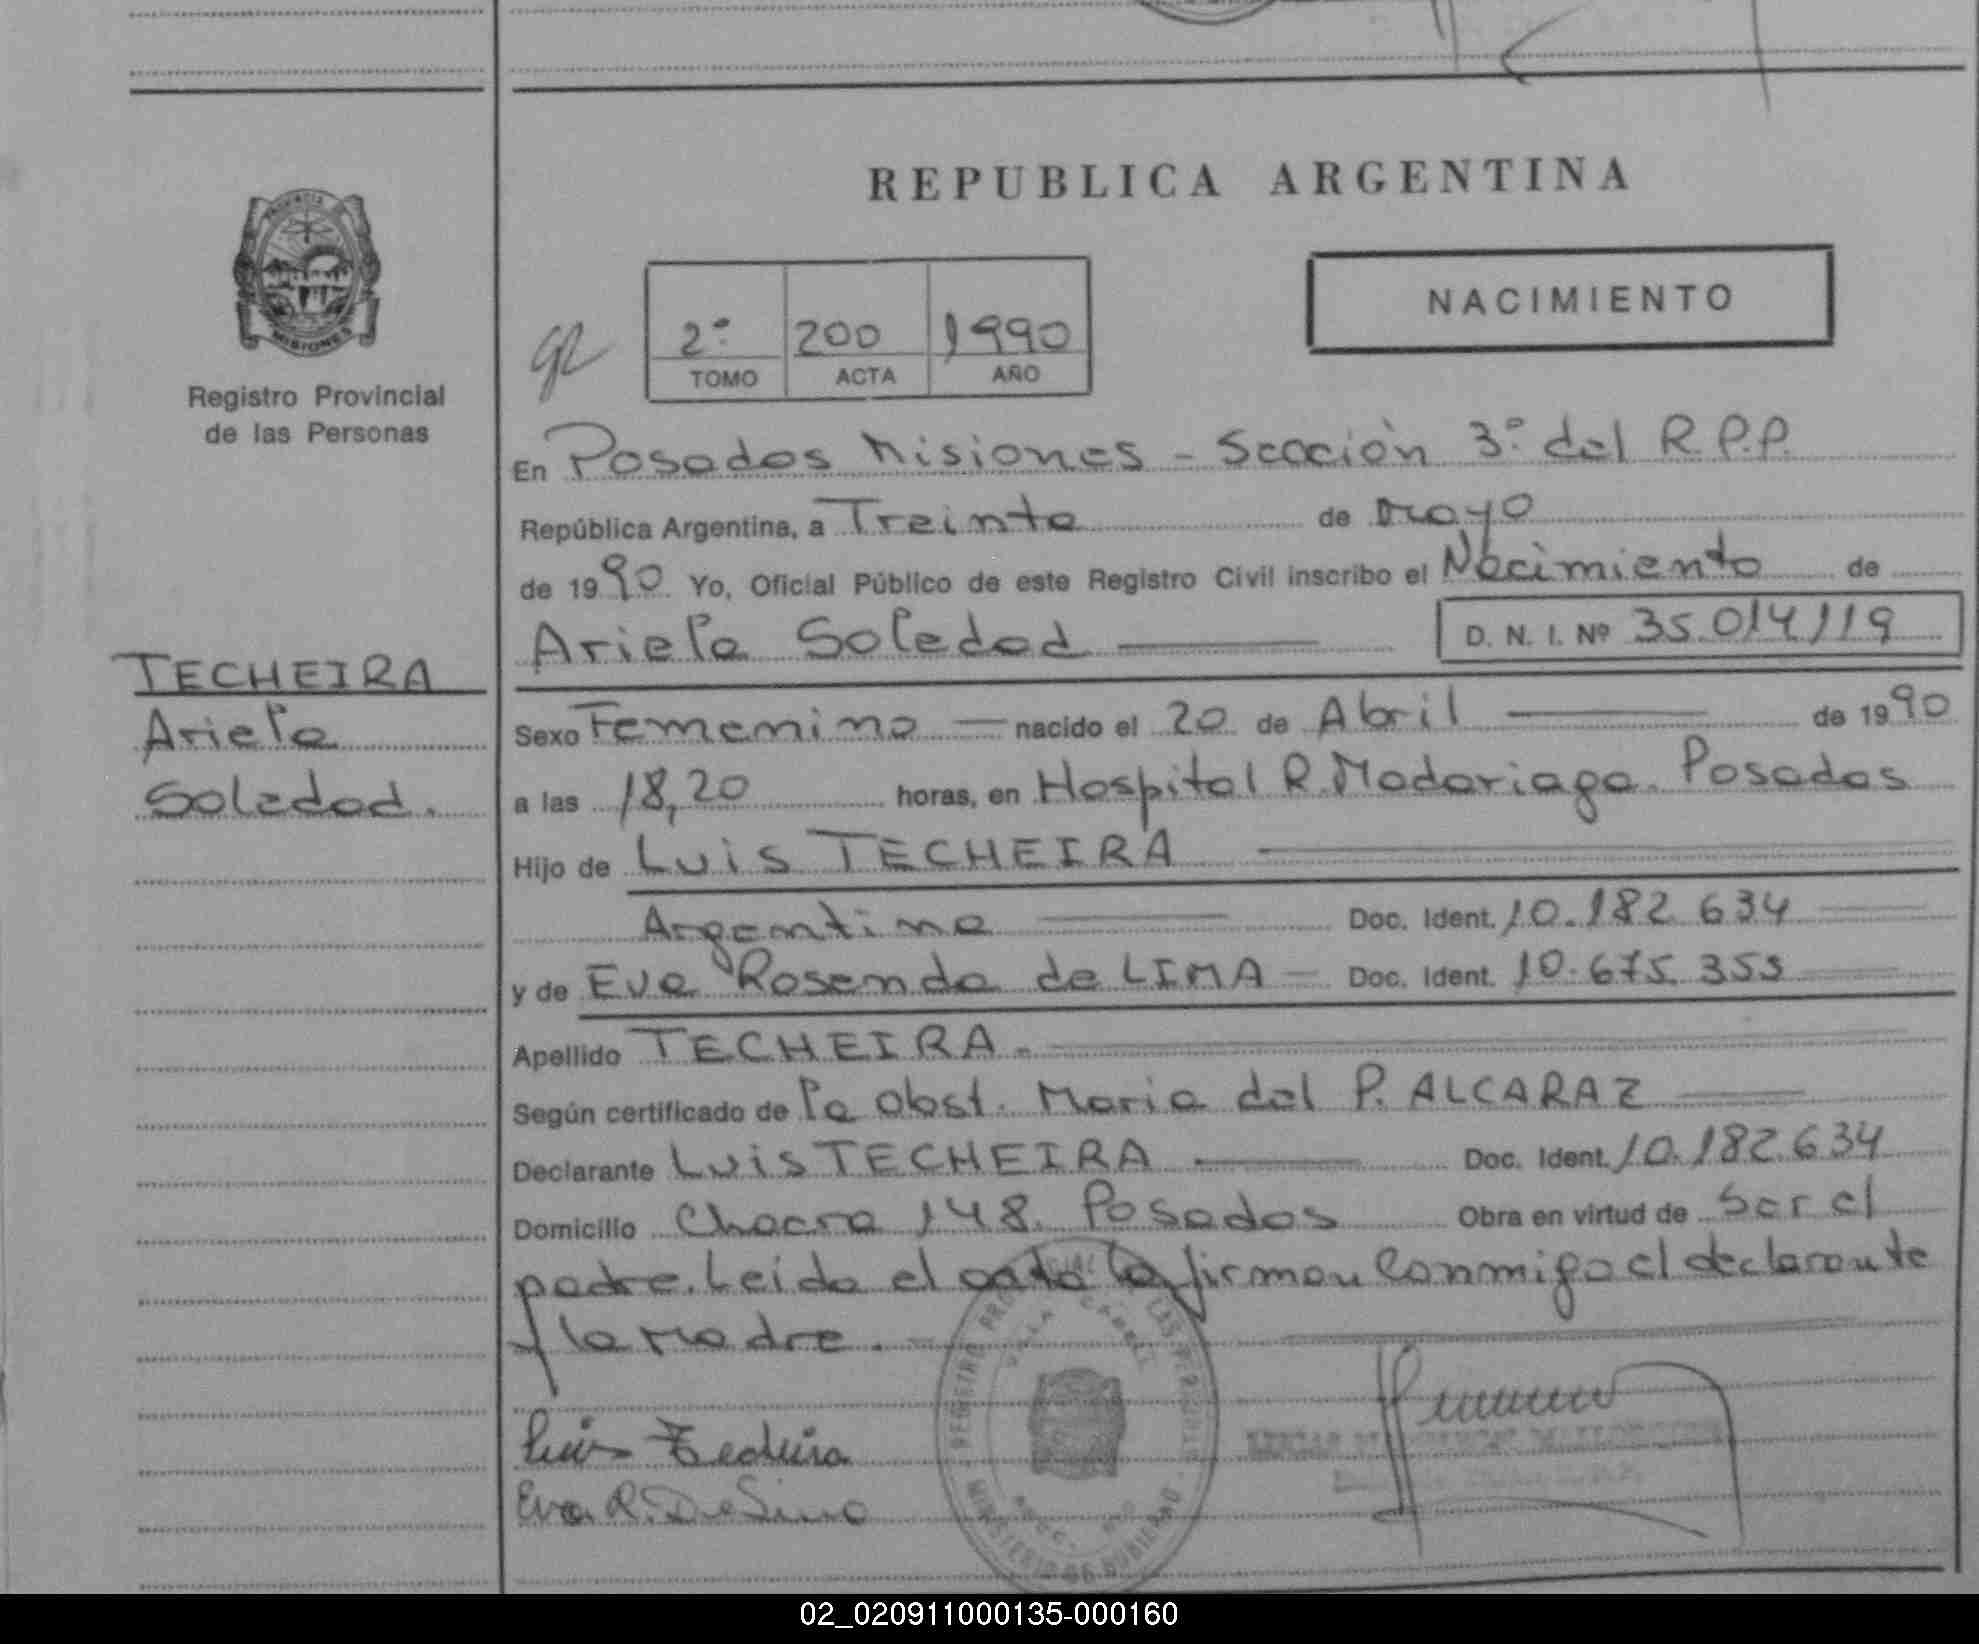 REPUBLICA ARGENTINA
NACIMIENTO
2º 200 1990
TOMO ACTA AÑO
Registro Provincial
de las Personas
En Posadas Misiones - Sección 3º del R.P.P.
República Argentina, a Treinta de Mayo
de 1990 Yo, Oficial Público de este Registro Civil inscribo el Nacimiento de
Ariela Soledad D. N. I. Nº 35.014119
TECHEIRA
Ariela
Soledad.
Sexo Femenino nacido el 20 de Abril de 1990
a las 18,20 horas, en Hospital R. Madariaga. Posadas
Hijo de Luis TECHEIRA
Argentino Doc. Ident. 10.182.634
y de Eva Rosenda de LIMA Doc. Ident. 10.675.353
Apellido TECHEIRA.
Según certificado de la obst. Maria del P. ALCARAZ
Declarante Luis TECHEIRA Doc. Ident. 10.182.634
Domicilio Chacra 148. Posadas Obra en virtud de ser el
padre. Leida el acta la firman conmigo el declarante
y la Madre.
Luis Techeira
Eva R. De Lima
REGISTRO LAS PERSONAS
MINISTERIO DE GOBIERNO
02_020911000135-000160